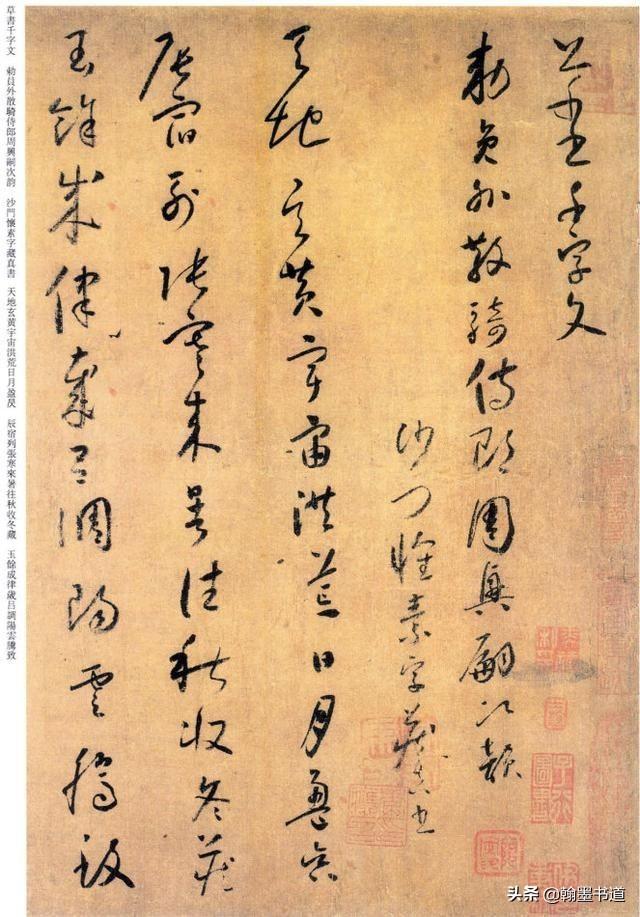 草書千字文
勅員外散騎侍郎周興嗣次韻
沙門懷素字藏真書
天地玄黃宇宙洪荒日月盈昃
辰宿列張寒來暑往秋收冬藏
玉餘成律歲呂調陽雲騰致
草書千字文 勅員外散騎侍郎周興嗣次韵 沙門懷素字藏真書 天地玄黃宇宙洪荒日月盈昃 辰宿列張寒來暑往秋收冬藏 玉餘成律歲吕調陽雲騰致
头条 @翰墨书道